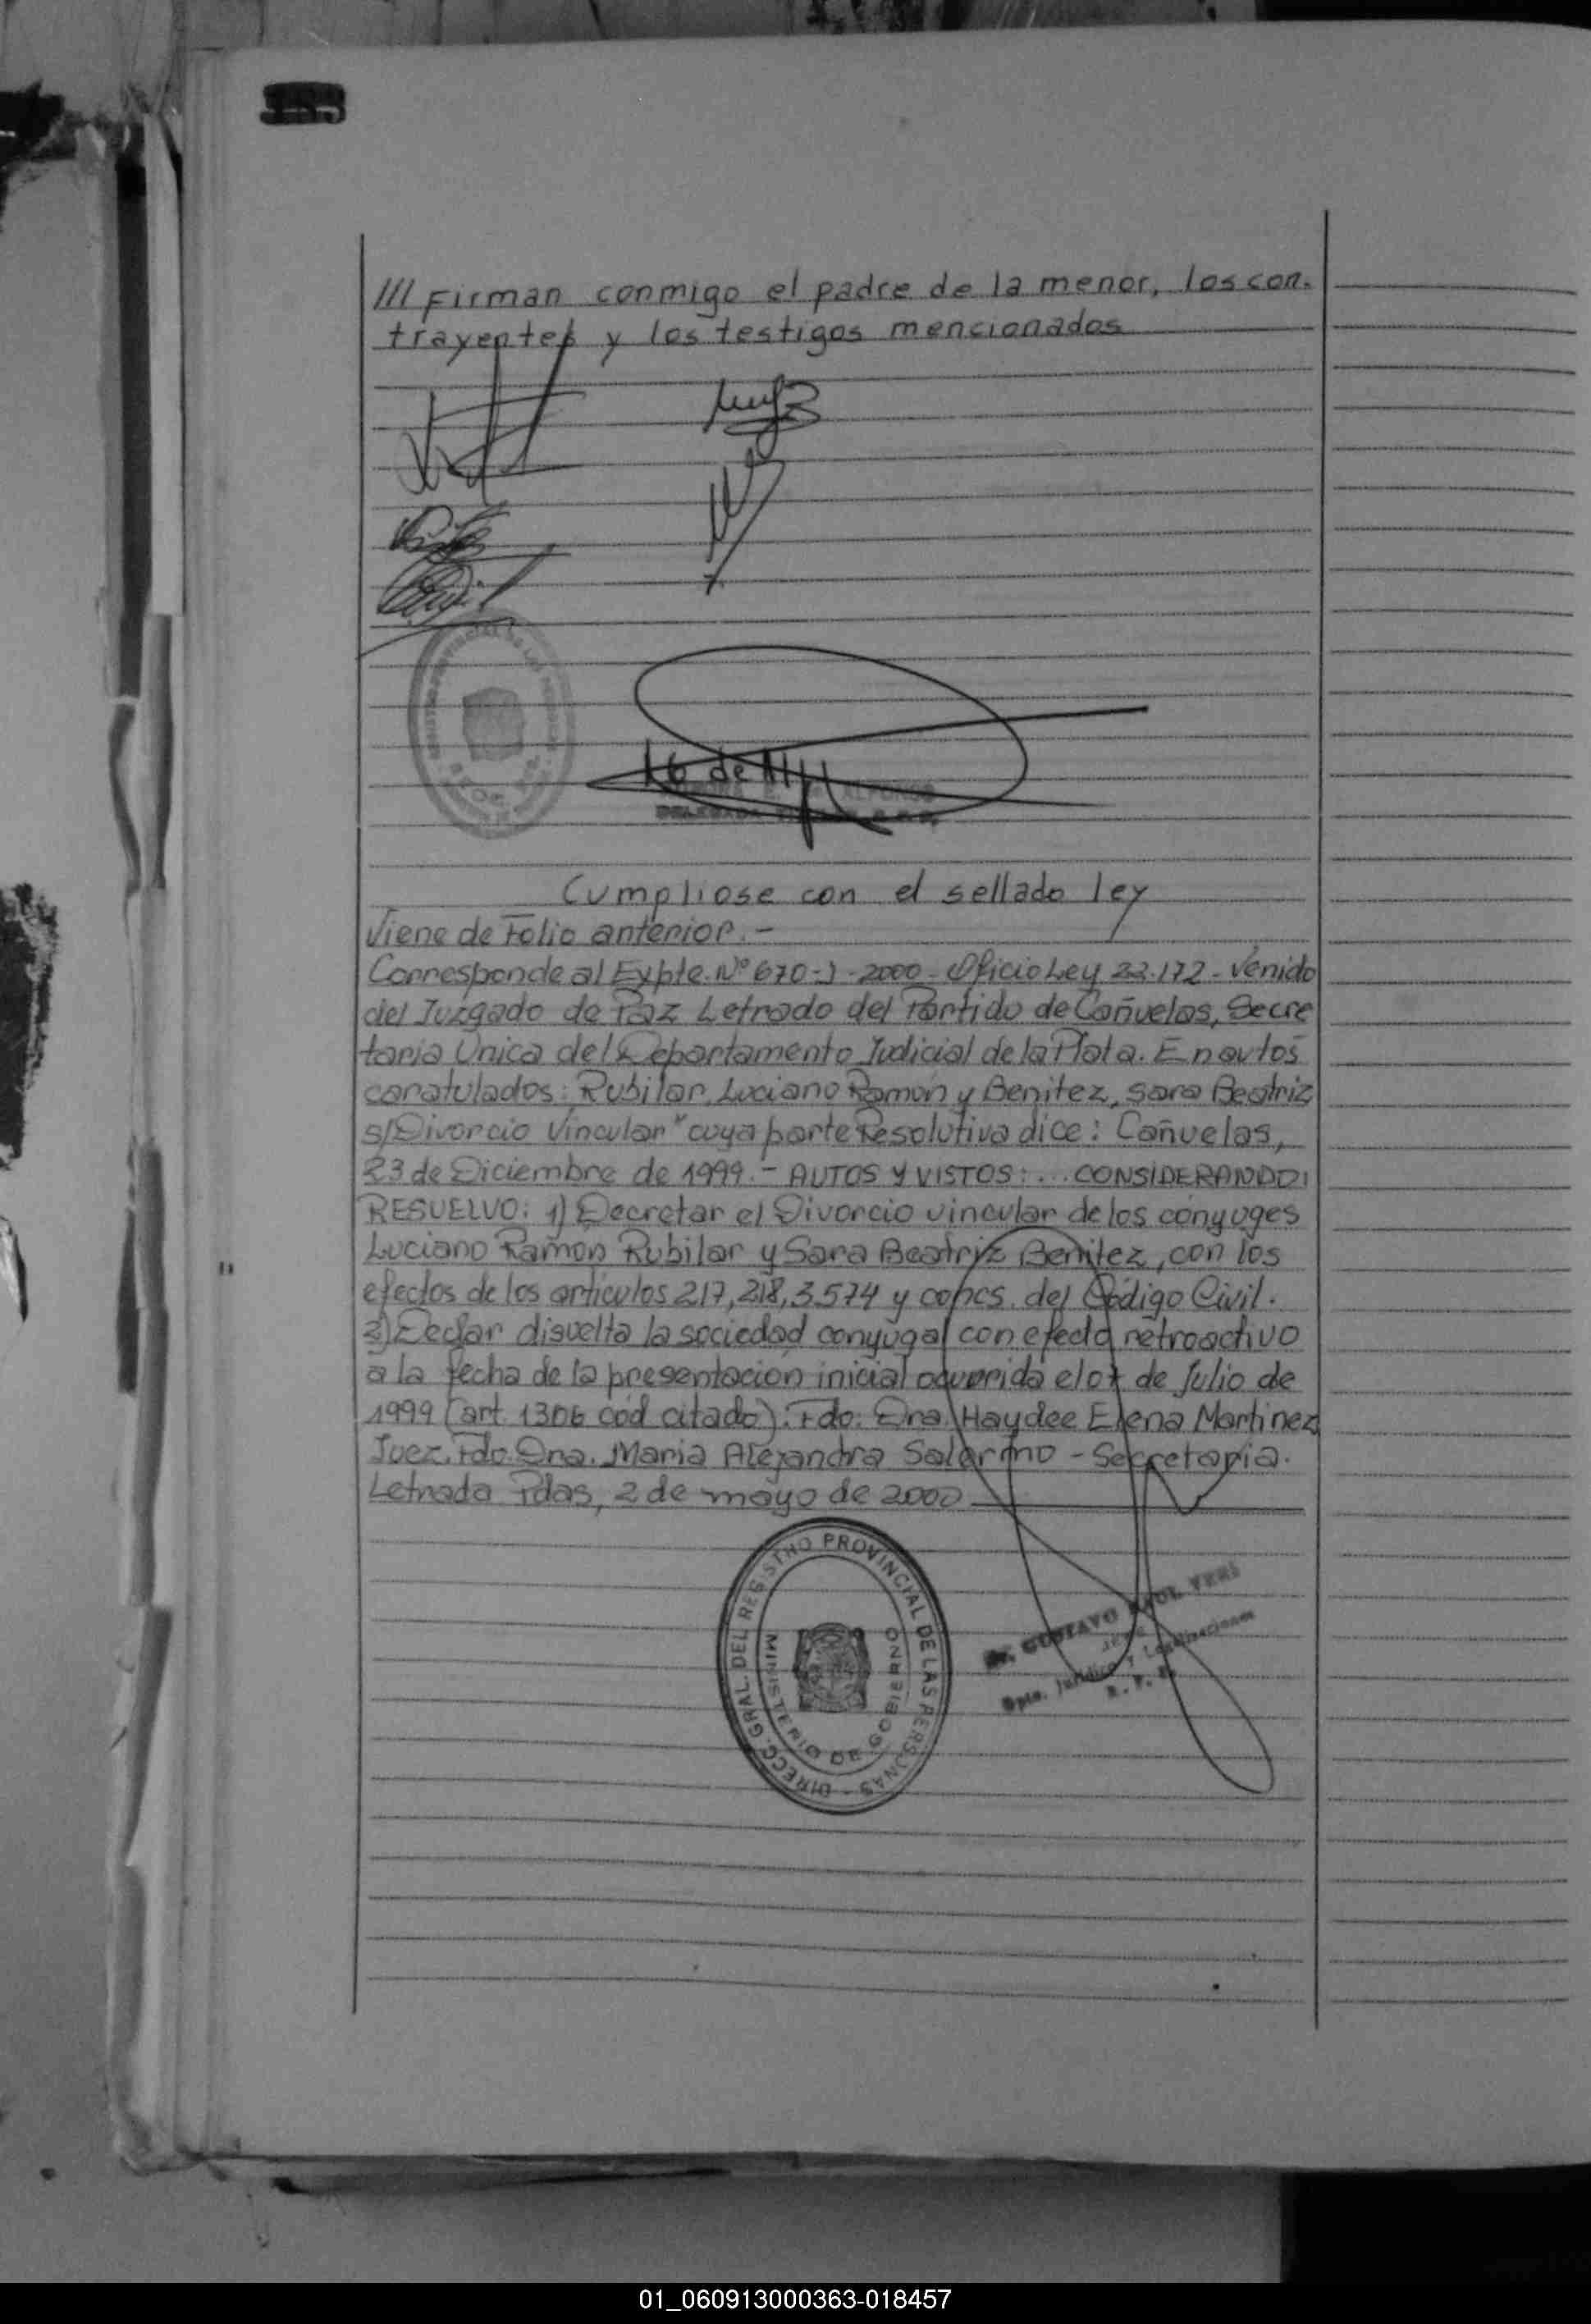 /// Firman conmigo el padre de la menor, los con.
trayentes y los testigos mencionados
16 de
ALFONSO
DELEGADA
Cumpliose con el sellado ley
Viene de Folio anterior.-
Corresponde al Expte. Nº 670-J-2000- Oficio Ley 22.172- Venido
del Juzgado de Paz Letrado del Partido de Cañuelas, Secre
taria Unica del Departamento Judicial de la Plata. En autos
caratulados: Rubilar, Luciano Ramón y Benitez, Sara Beatriz
s/Divorcio Vincular" cuya parte Resolutiva dice: Cañuelas,
23 de Diciembre de 1999.- AUTOS Y VISTOS: ... CONSIDERANDO:
RESUELVO: 1) Decretar el Divorcio vincular de los cónyuges
Luciano Ramon Rubilar y Sara Beatriz Benitez, con los
efectos de los artículos 217, 218, 3.574 y concs. del Código Civil.
2) Declar disuelta la sociedad conyugal con efecto retroactivo
a la fecha de la presentación inicial ocurrida el 07 de Julio de
1999 (art. 1306 cód citado). Fdo: Dra. Haydee Elena Martinez
Juez. Fdo. Dra. Maria Alejandra Salermo - Secretaria.
Letrada Pdas, 2 de mayo de 2000
DIRECC. GRAL. DEL REGISTRO PROVINCIAL DE LAS PERSONAS -
MINISTERIO DE GOBIERNO
Dr. GUSTAVO RAUL
JEFE
Dpto. Jurídico y Legalizaciones
R. P. P.
01_060913000363-018457